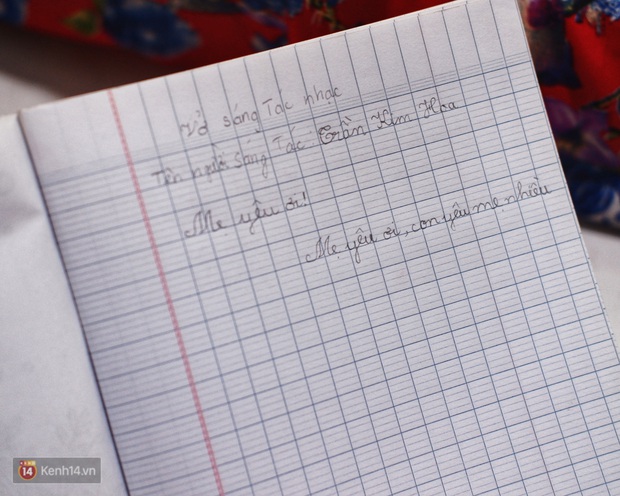 Vở sáng Tác nhạc
Tên người sáng Tác: Trần Kim Hoa
Mẹ yêu ơi!
Mẹ yêu ơi, con yêu mẹ nhiều
14 Kenh14.vn